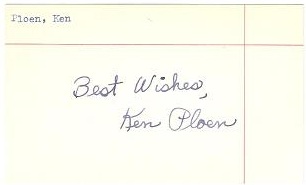 Ploen, Ken
Best Wishes,
Ken Ploen